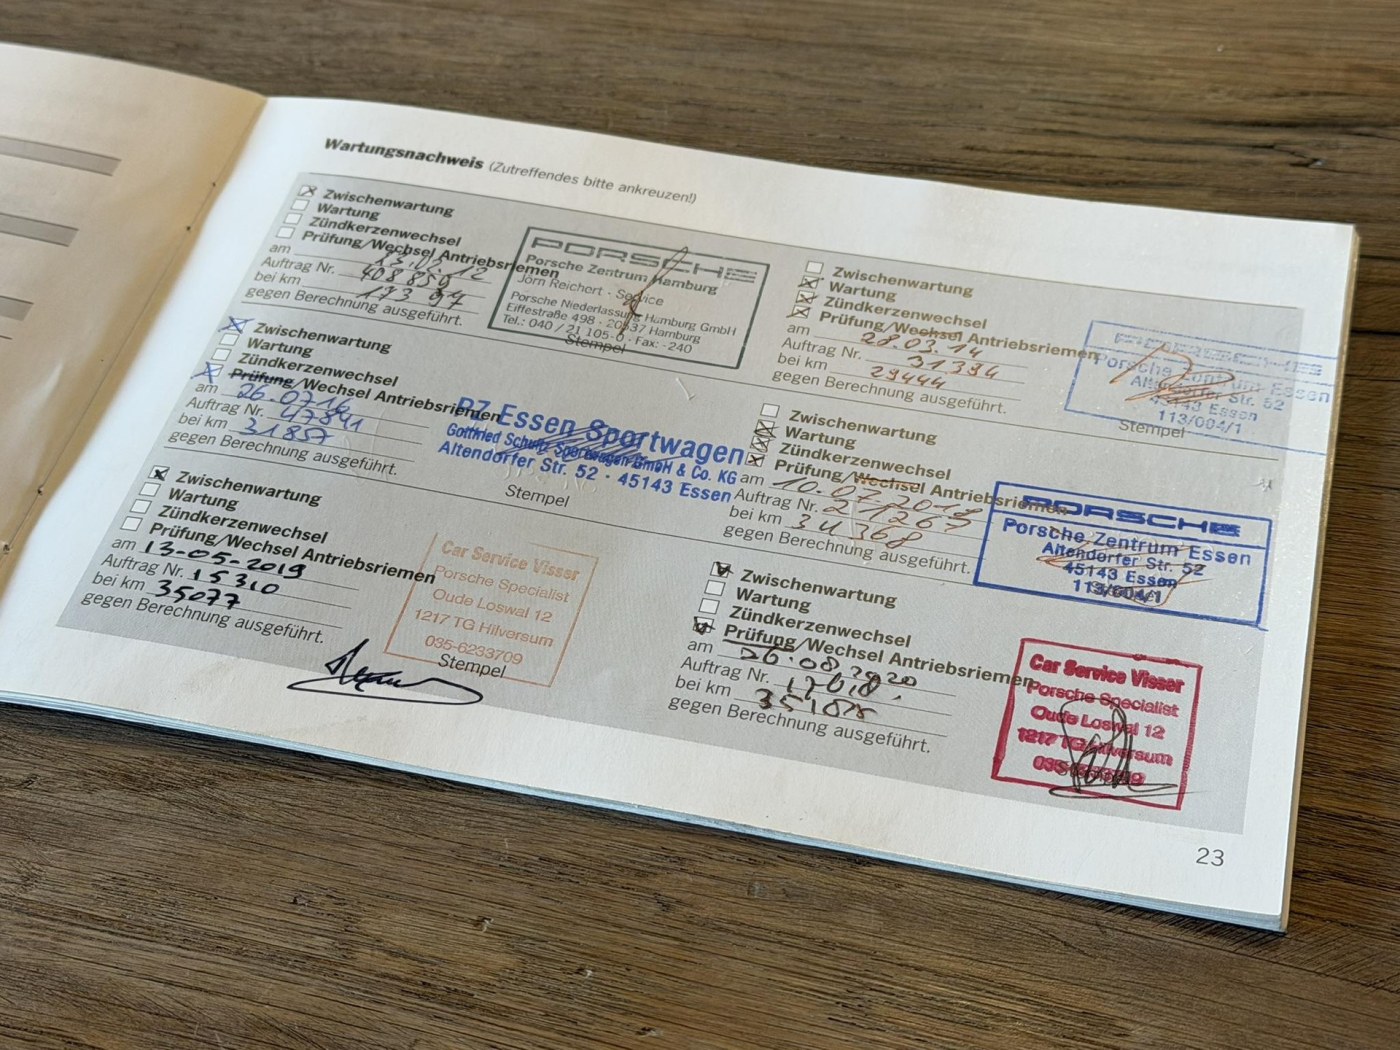 Wartungsnachweis (Zutreffendes bitte ankreuzen!)
Zwischenwartung
Wartung
Zündkerzenwechsel
Prüfung/Wechsel Antriebsriemen
am
Auftrag Nr. 408850
bei km
gegen Berechnung ausgeführt.
PORSCHE
Porsche Zentrum Hamburg
Jörn Reichert · Service
Porsche Niederlassung Hamburg GmbH
Eiffestraße 498 · 20537 Hamburg
Tel.: 040 / 21 105-0 · Fax: -240
Stempel
Zwischenwartung
Wartung
Zündkerzenwechsel
Prüfung/Wechsel Antriebsriemen
am 28.03.14
Auftrag Nr. 31394
bei km 29444
gegen Berechnung ausgeführt.
PORSCHE
Porsche Zentrum Essen
Altendorfer Str. 52
45143 Essen
113/004/1
Stempel
Zwischenwartung
Wartung
Zündkerzenwechsel
Prüfung/Wechsel Antriebsriemen
am 26.07.16
Auftrag Nr. 47841
bei km 31857
gegen Berechnung ausgeführt.
PZ Essen Sportwagen
Gottfried Schultz Sportwagen GmbH & Co. KG
Altendorfer Str. 52 · 45143 Essen
Stempel
Zwischenwartung
Wartung
Zündkerzenwechsel
Prüfung/Wechsel Antriebsriemen
am
Auftrag Nr. 271267
bei km 34368
gegen Berechnung ausgeführt.
PORSCHE
Porsche Zentrum Essen
Altendorfer Str. 52
45143 Essen
113/004/1
Zwischenwartung
Wartung
Zündkerzenwechsel
Prüfung/Wechsel Antriebsriemen
am 13-05-2019
Auftrag Nr. 15310
bei km 35077
gegen Berechnung ausgeführt.
Car Service Visser
Porsche Specialist
Oude Loswal 12
1217 TG Hilversum
035-6233709
Stempel
Zwischenwartung
Wartung
Zündkerzenwechsel
Prüfung/Wechsel Antriebsriemen
am 26.08.2020
Auftrag Nr.
bei km
gegen Berechnung ausgeführt.
Car Service Visser
Porsche Specialist
Oude Loswal 12
1217 TG Hilversum
23